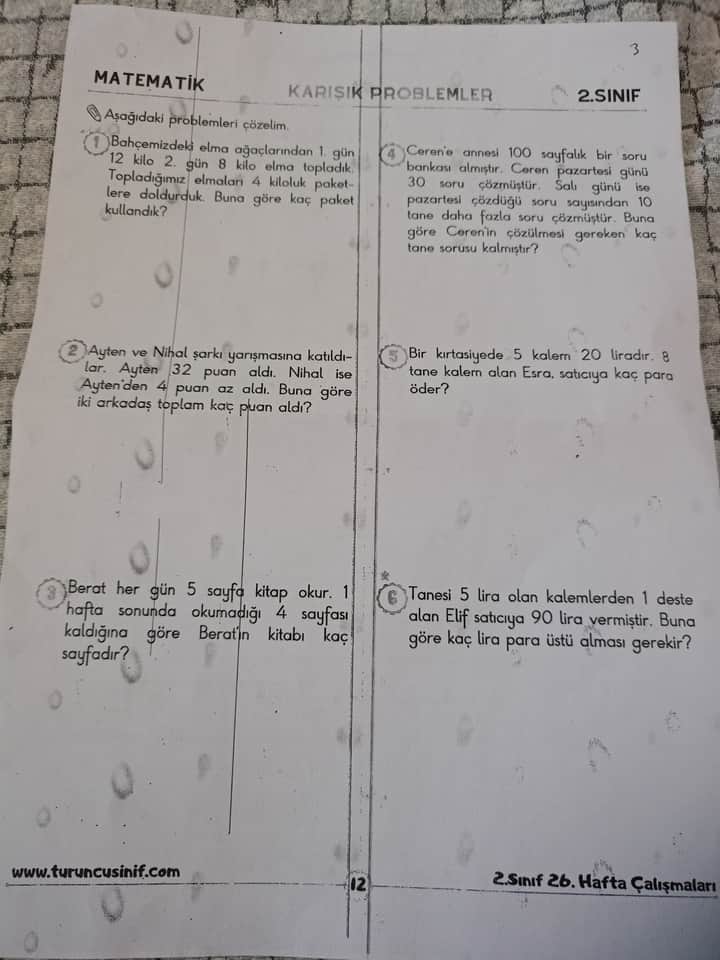 3
MATEMATİK
KARIŞIK PROBLEMLER
2.SINIF
Aşağıdaki problemleri çözelim.
1 Bahçemizdeki elma ağaçlarından 1. gün
12 kilo 2. gün 8 kilo elma topladık.
Topladığımız elmaları 4 kiloluk paket-
lere doldurduk. Buna göre kaç paket
kullandık?
2 Ayten ve Nihal şarkı yarışmasına katıldı-
lar. Ayten 32 puan aldı. Nihal ise
Ayten'den 4 puan az aldı. Buna göre
iki arkadaş toplam kaç puan aldı?
3 Berat her gün 5 sayfa kitap okur. 1
hafta sonunda okumadığı 4 sayfası
kaldığına göre Berat'ın kitabı kaç
sayfadır?
4 Ceren'e annesi 100 sayfalık bir soru
bankası almıştır. Ceren pazartesi günü
30 soru çözmüştür. Salı günü ise
pazartesi çözdüğü soru sayısından 10
tane daha fazla soru çözmüştür. Buna
göre Ceren'in çözülmesi gereken kaç
tane sorusu kalmıştır?
5 Bir kırtasiyede 5 kalem 20 liradır. 8
tane kalem alan Esra, satıcıya kaç para
öder?
6 Tanesi 5 lira olan kalemlerden 1 deste
alan Elif satıcıya 90 lira vermiştir. Buna
göre kaç lira para üstü alması gerekir?
www.turuncusinif.com
12
2.Sınıf 26. Hafta Çalışmaları